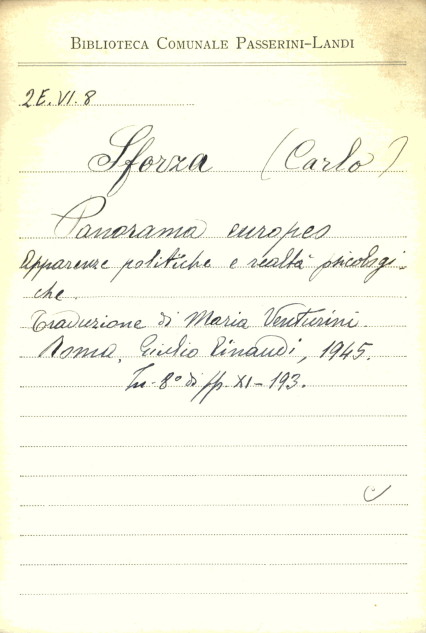 BIBLIOTECA COMUNALE PASSERINI-LANDI
2E.VI.8
Sforza (Carlo)
Panorama europeo
Apparenze politiche e realtà psicologi-
che.
Traduzione di Maria Venturini.
Roma, Giulio Einaudi, 1945.
In-8º di pp. XI-193.